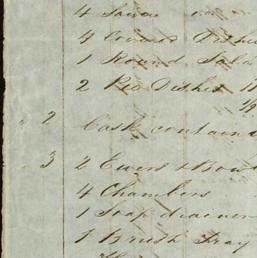 4
4 Covered Dishes
1 Round Sala
2 Pie Dishes 11
2 Cask contain
3 2 Ewers & Bow
4 Chambers
1 Soap drainer
1 Brush Tray